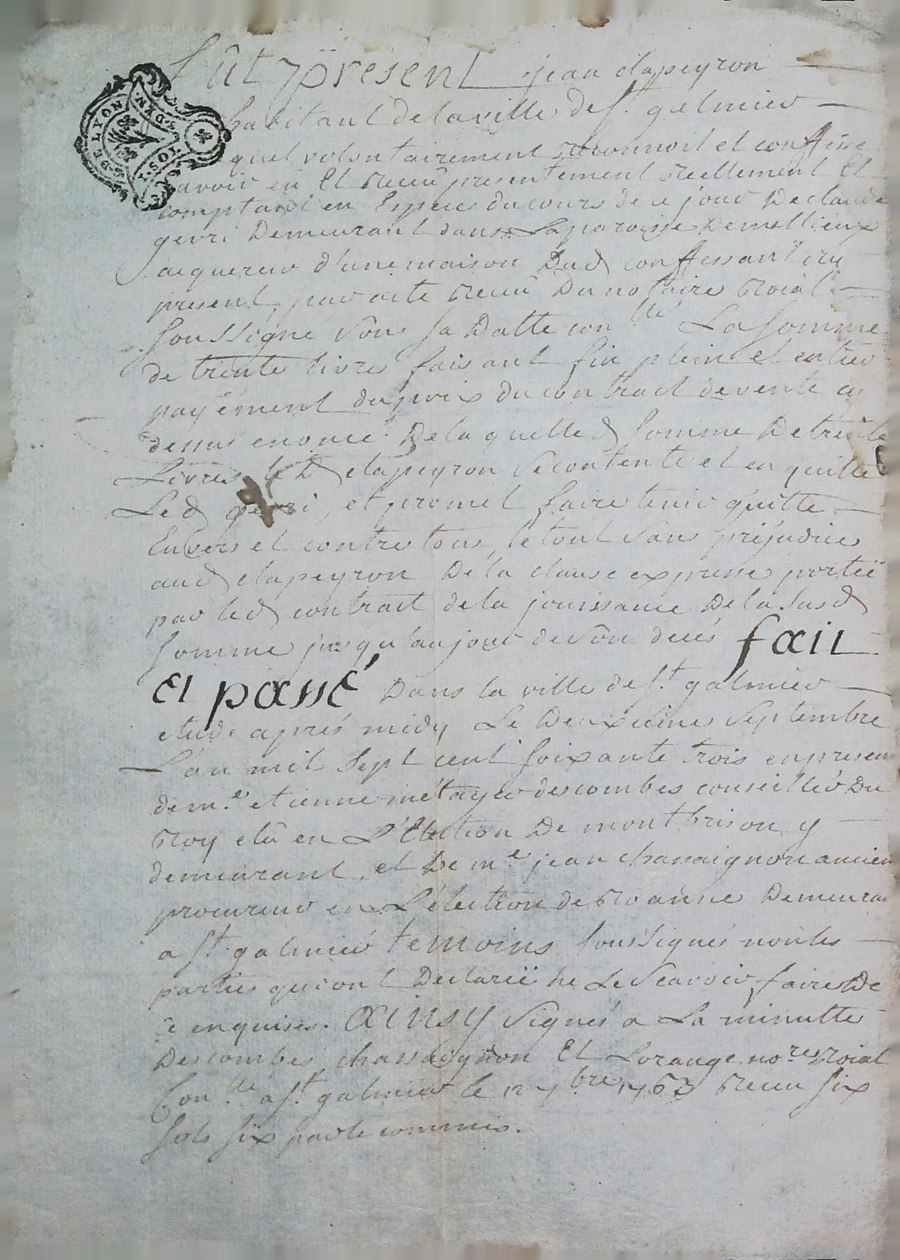 fût présent jean clapeyron
habitant de la ville de st. galmier
quel volontairement reconnoit et confesse
avoir eü Et receu presentement réellement Et
comptant en Espece du cours de ce jour De claude
gerri Demeurant dans La paroisse De mellieux
acquereur d'une maison Dud confessant icy
present, par acte receu Du notaire roial
soussigne sous sa Datte conllé La somme
de trente livres faisant fin pleine et entier
payement du prix du contract de vente cy
dessus enoncé De la quelle d somme De trente
Livres led clapeyron se contente et en quitte
Le d gerri, et promet faire tenir quitte
Envers et contre tous, le tout sans préjudice
aud clapeyron De la clause expresse portéé
par led contrat de la jouissance De la susd
somme jusqu'au jour de son decés fait
Et passé Dans la ville de st. galmier
etude après midy Le Deuxieme Septembre
L'an mil sept cent soixante trois en presen
de me. etienne métayer descombes conseiller Du
roy elû en L'Election De montbrison y
demeurant, et De me. jean chassaignon ancien
procureur en L'élection de roanne Demeuran
a st. galmier temoins soussignés non les
parties qui ont Declaréé ne Le scavoir faire De
ce enquises. Ainsy signés a La minutte
Descombes, chassaignon Et Lorange nore roial
Conllé a st. galmier le 12 7bre 1763 receu six
sols six par le commis.
DE LYON